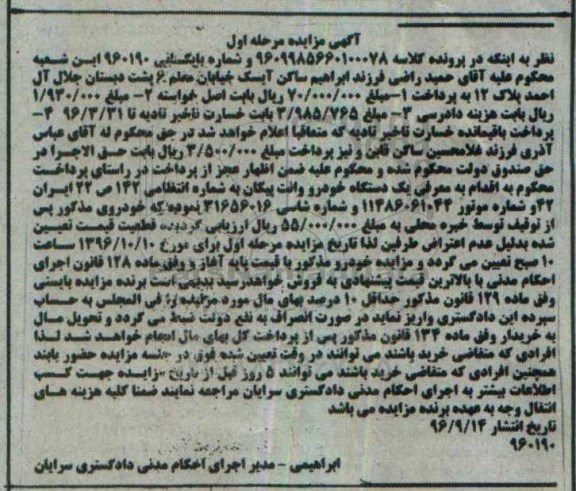 آگهی مزایده مرحله اول
نظر به اینکه در پرونده کلاسه ۹۶۰۹۹۸۵۶۶۰۱۰۰۰۷۸ و شماره بایگانی ۹۶۰۱۹۰ این شعبه
محکوم علیه آقای حمید راضی فرزند ابراهیم ساکن آیسک خیابان معلم ۶ پشت دبستان جلال آل
احمد پلاک ۱۲ به پرداخت ۱-مبلغ ۷۰/۰۰۰/۰۰۰ ریال بابت اصل خواسته ۲- مبلغ ۱/۹۳۰/۰۰۰
ریال بابت هزینه دادرسی ۳- مبلغ ۳/۹۸۵/۷۶۵ بابت خسارت تاخیر تادیه تا ۹۶/۳/۳۱ ۴-
پرداخت باقیمانده خسارت تاخیر تادیه که متعاقبا اعلام خواهد شد در حق محکوم له آقای عباس
آذری فرزند غلامحسین ساکن قاین و نیز پرداخت مبلغ ۳/۵۰۰/۰۰۰ ریال بابت حق الاجرا در
حق صندوق دولت محکوم شده و محکوم علیه ضمن اظهار عجز از پرداخت در راستای پرداخت
محکوم به اقدام به معرفی یک دستگاه خودرو وانت پیکان به شماره انتظامی ۱۴۲ ص ۲۲ ایران
۴۲و شماره موتور ۱۱۳۸۶۰۶۱۰۴۳ و شماره شاسی ۳۱۶۵۶۰۱۶ نموده که خودروی مذکور پس
از توقیف توسط خبره محلی به مبلغ ۵۵/۰۰۰/۰۰۰ ریال ارزیابی گردیده قطعیت قیمت تعیین
شده بدلیل عدم اعتراض طرفین لذا تاریخ مزایده مرحله اول برای مورخ ۱۳۹۶/۱۰/۱۰ ساعت
۱۰ صبح تعیین می گردد و مزایده خودرو مذکور با قیمت پایه آغاز و وفق ماده ۱۲۸ قانون اجرای
احکام مدنی با بالاترین قیمت پیشنهادی به فروش خواهدرسید بدیهی است برنده مزایده بایستی
وفق ماده ۱۲۹ قانون مذکور حداقل ۱۰ درصد بهای مال مورد مزایده را فی المجلس به حساب
سپرده این دادگستری واریز نماید در صورت انصراف به نفع دولت ضبط می گردد و تحویل مال
به خریدار وفق ماده ۱۳۴ قانون مذکور پس از پرداخت کل بهای مال انجام خواهد شد لذا
افرادی که متقاضی خرید باشند می توانند در وقت تعیین شده فوق در جلسه مزایده حضور یابند
همچنین افرادی که متقاضی خرید باشند می توانند ۵ روز قبل از تاریخ مزایده جهت کسب
اطلاعات بیشتر به اجرای احکام مدنی دادگستری سرایان مراجعه نمایند ضمنا کلیه هزینه های
انتقال وجه به عهده برنده مزایده می باشد
تاریخ انتشار ۹۶/۹/۱۴
۹۶۰۱۹۰
ابراهیمی – مدیر اجرای احکام مدنی دادگستری سرایان